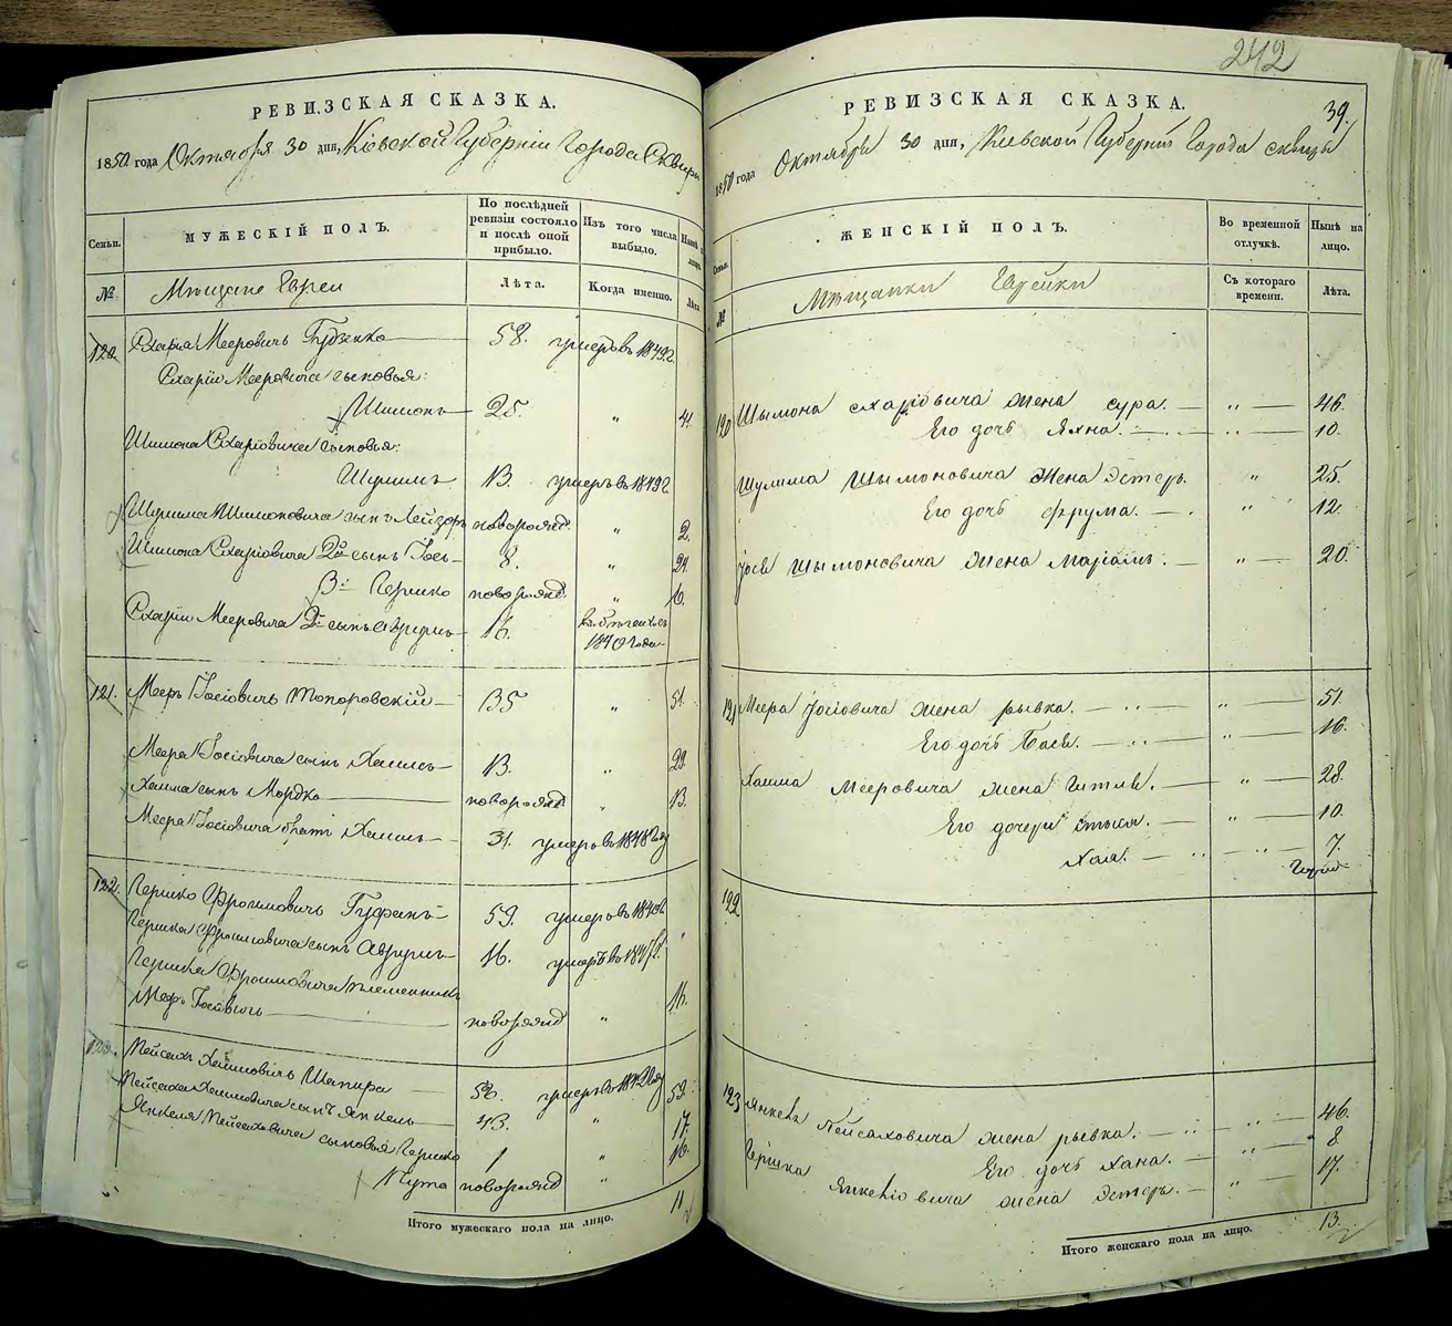 РЕВИЗСКАЯ СКАЗКА.
1850 года Октября 30 дня, Кіевской Губерніи Города Сквиры
Семьи.
МУЖЕСКІЙ ПОЛЪ.
По послѣдней ревизіи состояло и послѣ оной прибыло.
Изъ того числа выбыло.
Нынѣ
№
Мѣщане Евреи
Лѣта.
Когда именно.
Лѣта
120. Мееровичъ 58. умеръ въ 1849 г.
Мееровича сыновья:
Шимонъ 25. " 41.
Шимона сыновья:
Шулимъ 13. умеръ въ 1849 г.
Шулима Шимоновича сынъ Лейзоръ новорожд. " 2.
Шимона 2й сынъ Іось 8. " 24.
3й Гершко новорожд. " 6.
Мееровича 2й сынъ 16. 1840 года
121. Мееръ Іосіовичъ Топоровскій 35 " 51.
Меера Іосіовича сынъ Хаимъ 13. " 29.
Хаима сынъ Мордко новорожд. " 13.
Меера Іосіовича братъ 31. умеръ въ 1848 году
122. Гершко Фроимовичъ 59. умеръ въ
Гершка Фроимовича сынъ Аврумъ 16. умеръ въ "
Гершка Фроимовича племянникъ
новорожд " 16.
123. Пейсахъ Хаимовичъ Шапира 58. умеръ въ
Пейсаха Хаимовича сынъ Янкель 43. " 59.
Янкеля Пейсаховича сыновья Гершко 1 " 17.
новорожд " 16.
Итого мужескаго пола на лицо. 11
242
39.
РЕВИЗСКАЯ СКАЗКА.
1850 года Октября 30 дня, Кіевской Губерніи Города Сквиры
Семьи.
ЖЕНСКІЙ ПОЛЪ.
Во временной отлучкѣ.
Нынѣ на лицо.
№
Мѣщанки Еврейки
Съ котораго времени.
Лѣта.
120 Шымона жена сура. " 46.
Его дочь Яхна. " 10.
Шулима Шымоновича Жена Эстеръ. " 25.
Его дочь Фрума. " 12.
Іося Шымоновича жена Маріамъ. " 20.
121 Меера Іосіовича жена рывка. " 51.
Его дочь Бася. " 16.
Хаима Мееровича жена Гитля. " 28.
Его дочери " 10.
Хая. " 7.
122
123 Янкеля Пейсаховича жена рывка. " 46.
Его дочь Хана. " 8
Гершка Янкеліовича жена Эстеръ. " 17.
Итого женскаго пола на лицо. 13.